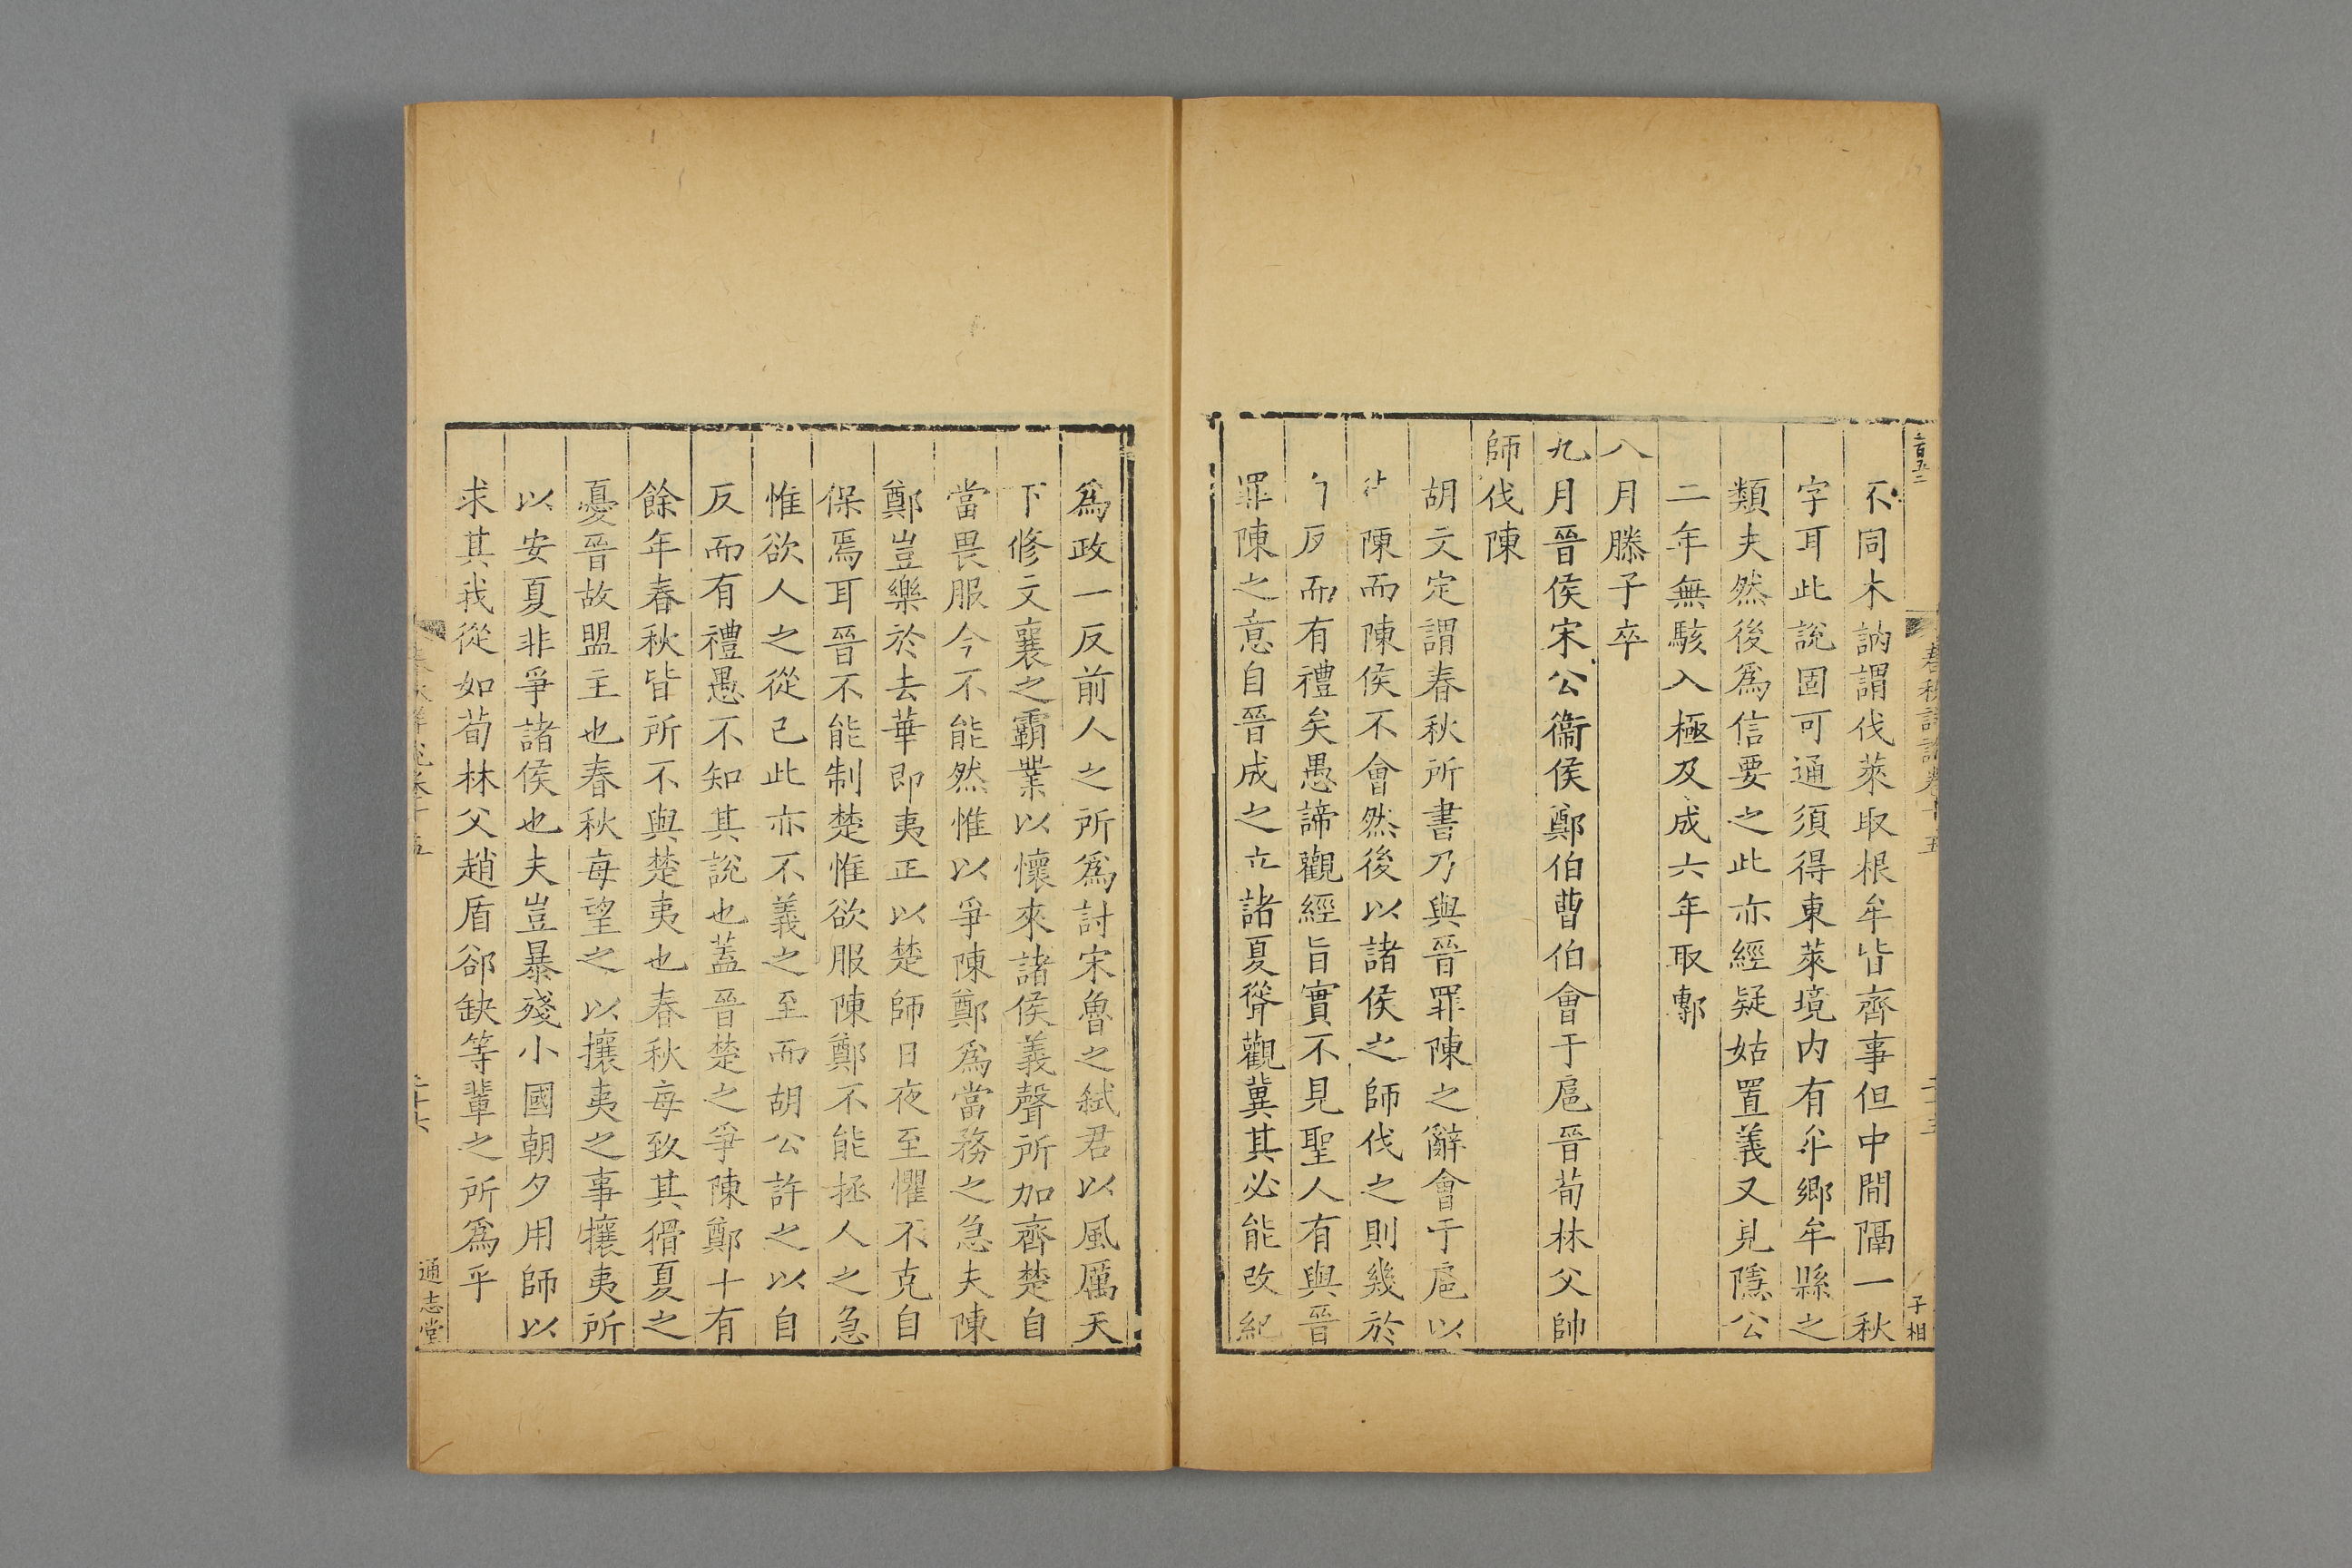 不同木訥謂伐萊取根牟皆齊事但中間隔一秋
字耳此說固可通須得東萊境内有牟鄉牟縣之
類夫然後爲信要之此亦經疑姑置義又見隱公
二年無駭入極及成六年取鄟
八月滕子卒
九月晉侯宋公衞侯鄭伯曹伯會于扈晉荀林父帥
師伐陳
胡文定謂春秋所書乃與晉罪陳之辭會于扈以
陳而陳侯不會然後以諸侯之師伐之則幾於
反而有禮矣愚諦觀經旨實不見聖人有與晉
罪陳之意自晉成之立諸夏聳觀冀其必能改紀
爲政一反前人之所爲討宋魯之弑君以風厲天
下修文襄之霸業以懷來諸侯義聲所加齊楚自
當畏服今不能然惟以爭陳鄭爲當務之急夫陳
鄭豈樂於去華即夷正以楚師日夜至懼不克自
保焉耳晉不能制楚惟欲服陳鄭不能拯人之急
惟欲人之從己此亦不義之至而胡公許之以自
反而有禮愚不知其說也蓋晉楚之爭陳鄭十有
餘年春秋皆所不與楚夷也春秋每致其猾夏之
憂晉故盟主也春秋每望之以攘夷之事攘夷所
以安夏非爭諸侯也夫豈暴殘小國朝夕用師以
求其我從如荀林父趙盾郤缺等輩之所爲乎
通志堂
子相